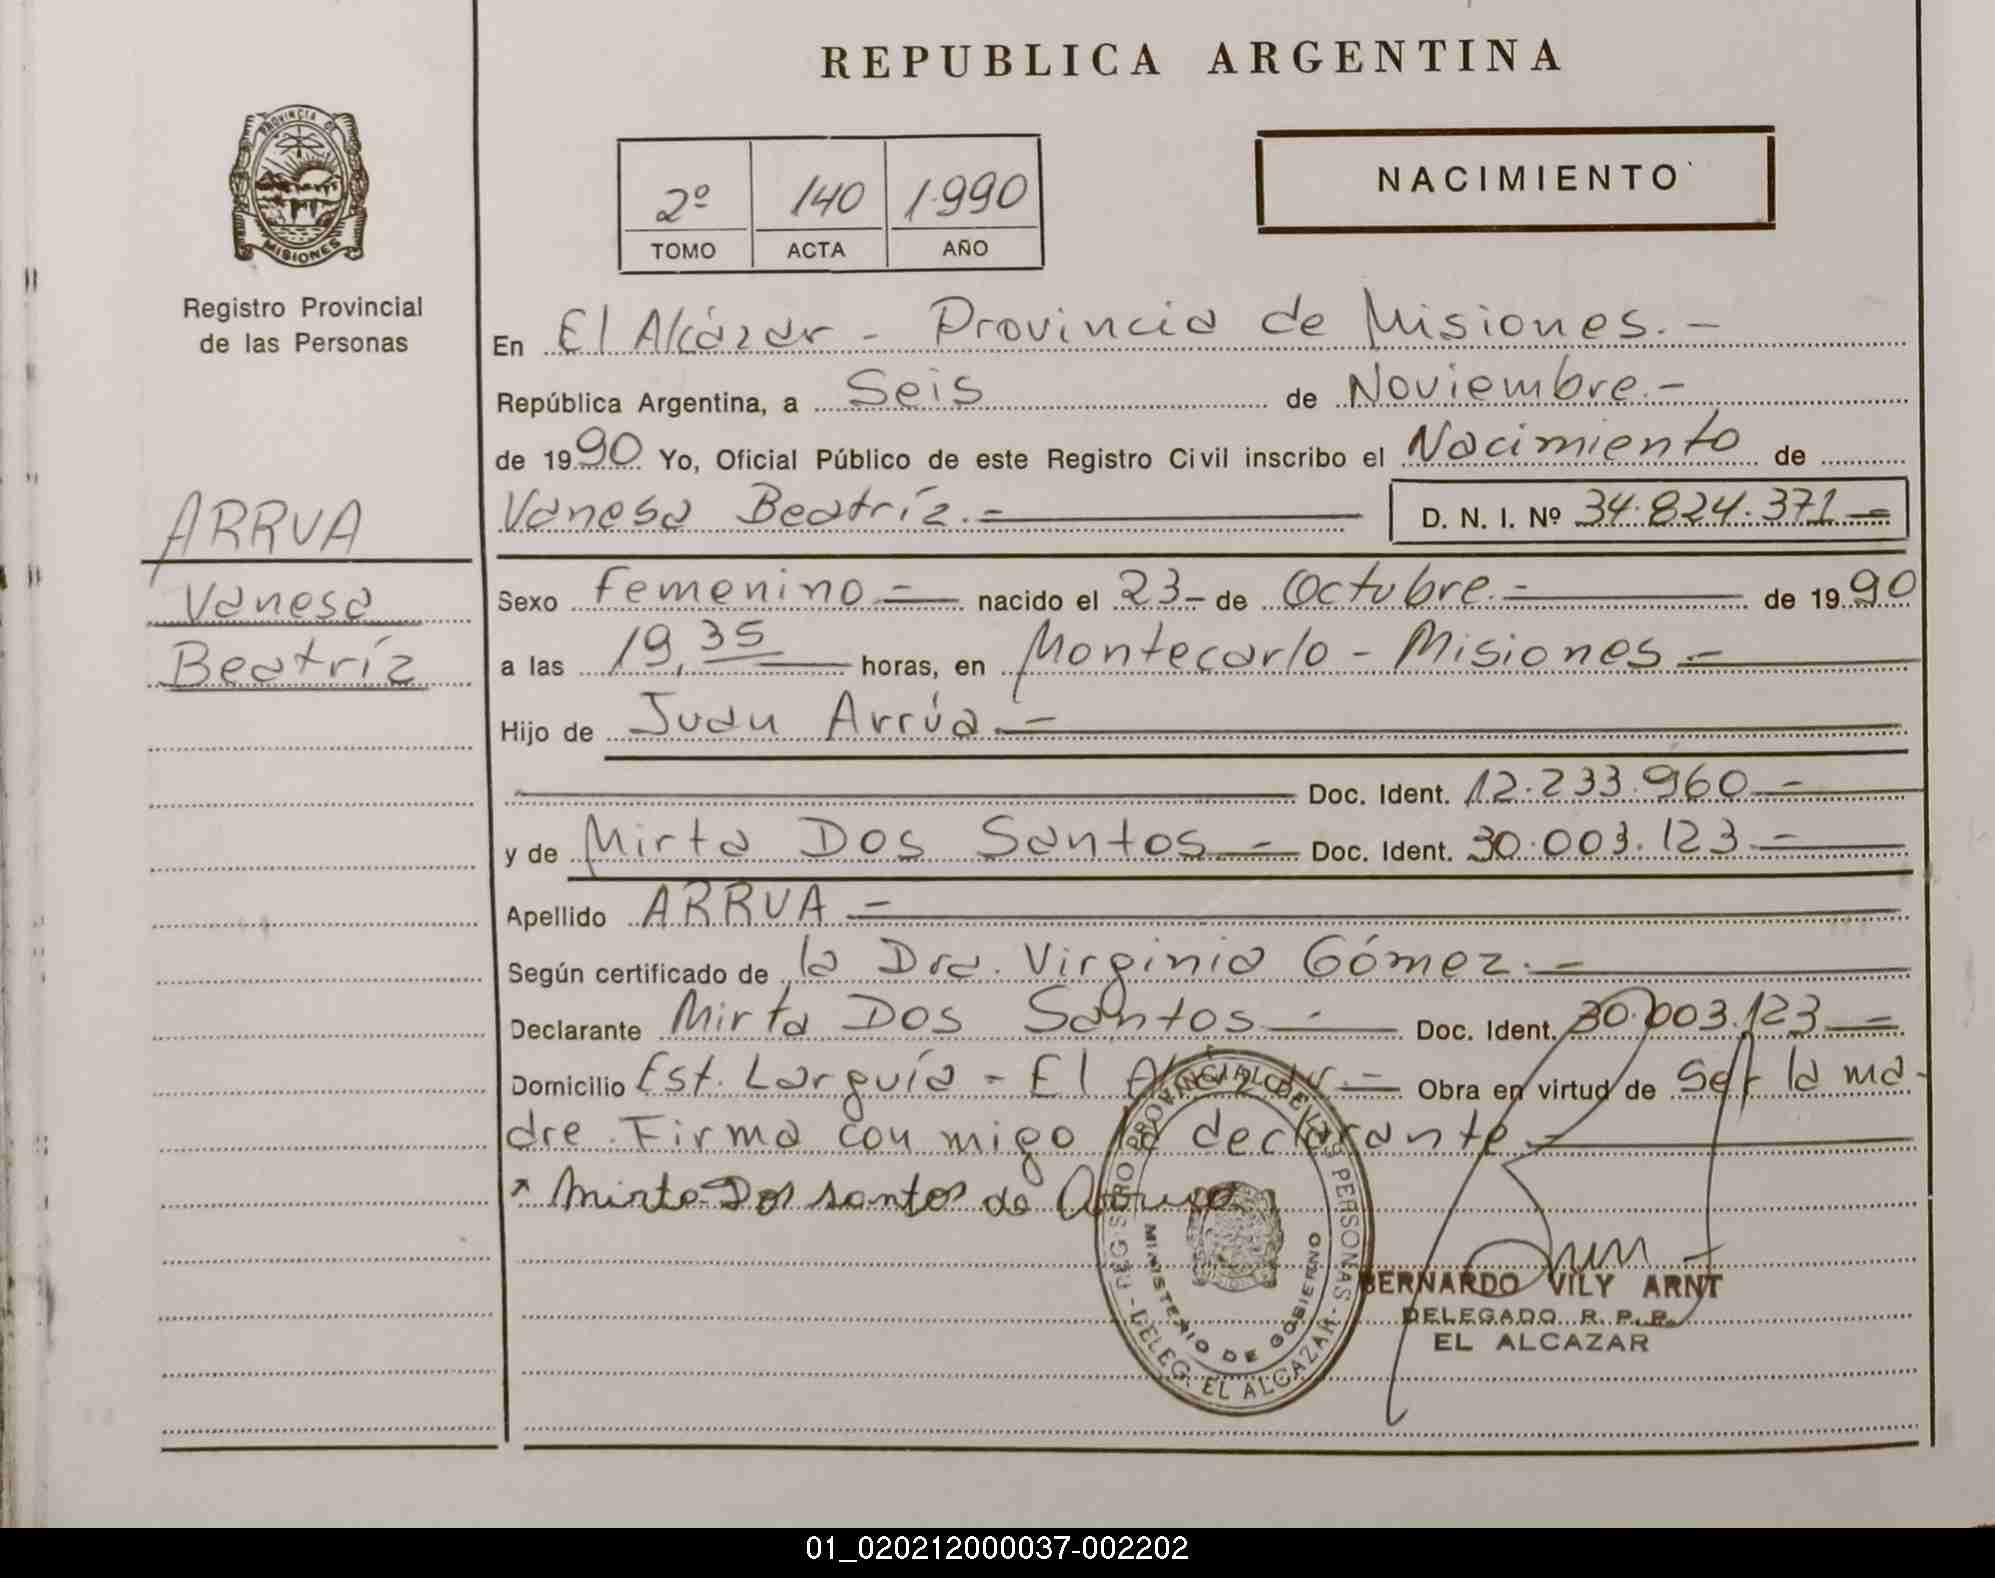 REPUBLICA ARGENTINA
PROVINCIA DE
MISIONES
Registro Provincial
de las Personas
2º 140 1.990
TOMO ACTA AÑO
NACIMIENTO
En El Alcázar - Provincia de Misiones.-
República Argentina, a Seis de Noviembre.-
de 1990 Yo, Oficial Público de este Registro Civil inscribo el Nacimiento de
Vanesa Beatríz.- D. N. I. Nº 34.824.371-
ARRUA
Vanesa
Beatríz
Sexo Femenino - nacido el 23- de Octubre.- de 1990
a las 19,35 horas, en Montecarlo - Misiones.-
Hijo de Juan Arrúa.-
Doc. Ident. 12.233.960.-
y de Mirta Dos Santos.- Doc. Ident. 30.003.123.-
Apellido ARRUA -
Según certificado de la Dra. Virginia Gómez.-
Declarante Mirta Dos Santos.- Doc. Ident. 30.003.123.-
Domicilio Est. Larguía - El Alcázar.- Obra en virtud de Ser la ma-
dre. Firma con migo la declarante.-
Mirta Dos santos de Arrua
REGISTRO PROVINCIAL DE LAS PERSONAS
MINISTERIO DE GOBIERNO
-DELEG. EL ALCAZAR-
BERNARDO VILY ARNT
DELEGADO R. P. P.
EL ALCAZAR
01_020212000037-002202